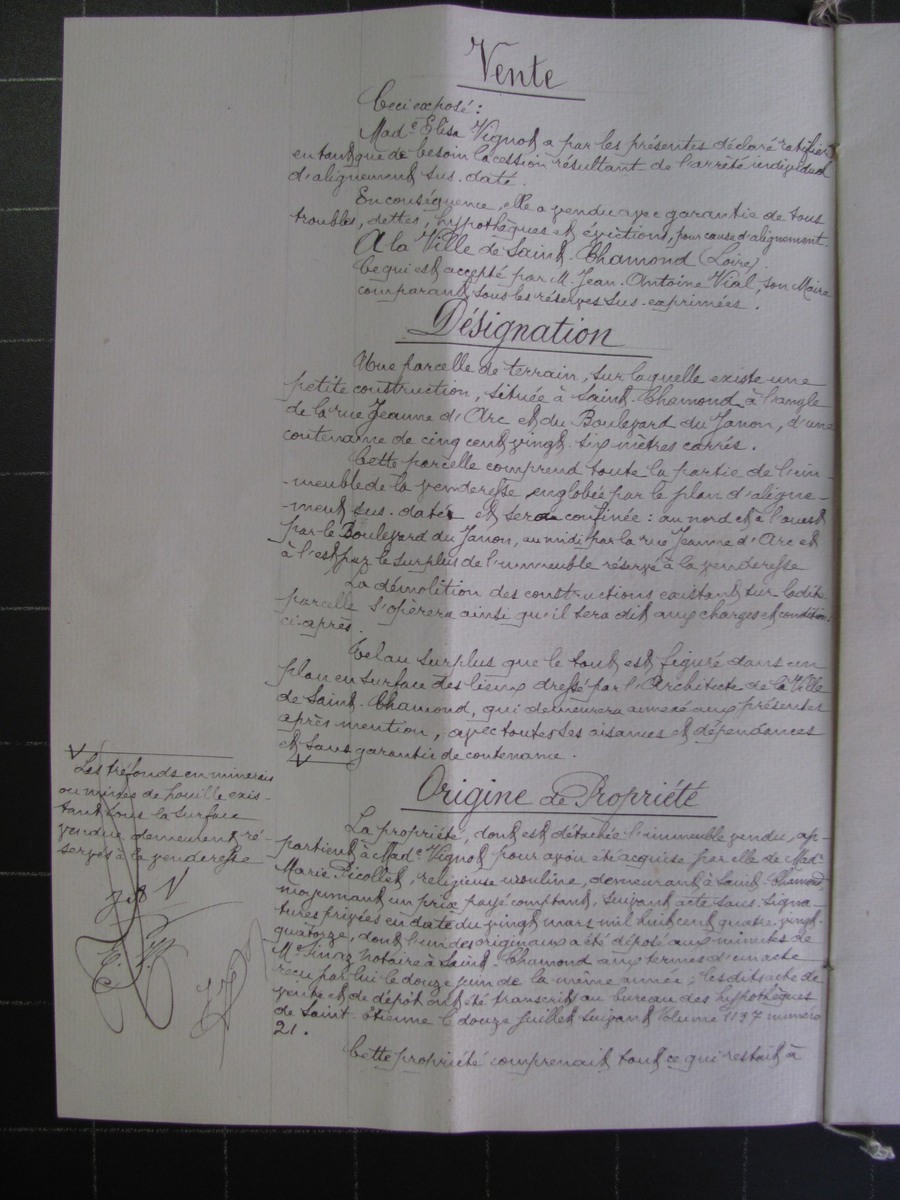 Vente
Ceci exposé :
Made Elisa Vignot a par les présentes déclaré ratifier
en tant que de besoin la cession résultant de l'arrêté individuel
d'alignement sus-daté.
En conséquence, elle a vendu avec garantie de tous
troubles, dettes, hypothèques et évictions, pour cause d'alignement
A la Ville de Saint-Chamond (Loire).
Ce qui est accepté par M. Jean-Antoine Vial, son Maire
comparant, sous les réserves sus-exprimées.
Désignation
Une parcelle de terrain, sur laquelle existe une
petite construction, située à Saint-Chamond, à l'angle
de la rue Jeanne d'Arc et du Boulevard du Janon, d'une
contenance de cinq cent vingt-six mètres carrés.
Cette parcelle comprend toute la partie de l'im-
-meuble de la venderesse englobée par le plan d'aligne-
-ment sus-daté et sera confinée : au nord et à l'ouest
par le Boulevard du Janon, au midi par la rue Jeanne d'Arc et
à l'est par le surplus de l'immeuble réservé à la venderesse
La démolition des constructions existant sur ladite
parcelle s'opèrera ainsi qu'il sera dit aux charges et conditions
ci-après.
Tel au surplus que le tout est figuré dans un
plan en surface des lieux dressé par l'Architecte de la Ville
de Saint-Chamond, qui demeurera annexé aux présentes
après mention, avec toutes ses aisances et dépendances
et sans garantie de contenance.
Les tréfonds en minerais
ou mines de houille exis-
tant sous la surface
vendue demeurent ré-
servés à la venderesse
Origine de Propriété
La propriété, dont est détaché l'immeuble vendu, ap-
partient à Made Vignot pour avoir été acquise par elle de Made
Marie Picollet, religieuse ursuline, demeurant à Saint-Chamond
moyennant un prix payé comptant, suivant acte sous signa-
tures privées en date du vingt mars mil huit cent quatre-vingt-
quatorze, dont l'un des originaux a été déposé aux minutes de
Me Finaz notaire à Saint-Chamond aux termes d'un acte
reçu par lui le douze juin de la même année ; lesdits acte de
vente et de dépôt ont été transcrits au bureau des hypothèques
de Saint-Etienne le douze juillet suivant volume 1197 numéro
21.
Cette propriété comprenait tout ce qui restait à